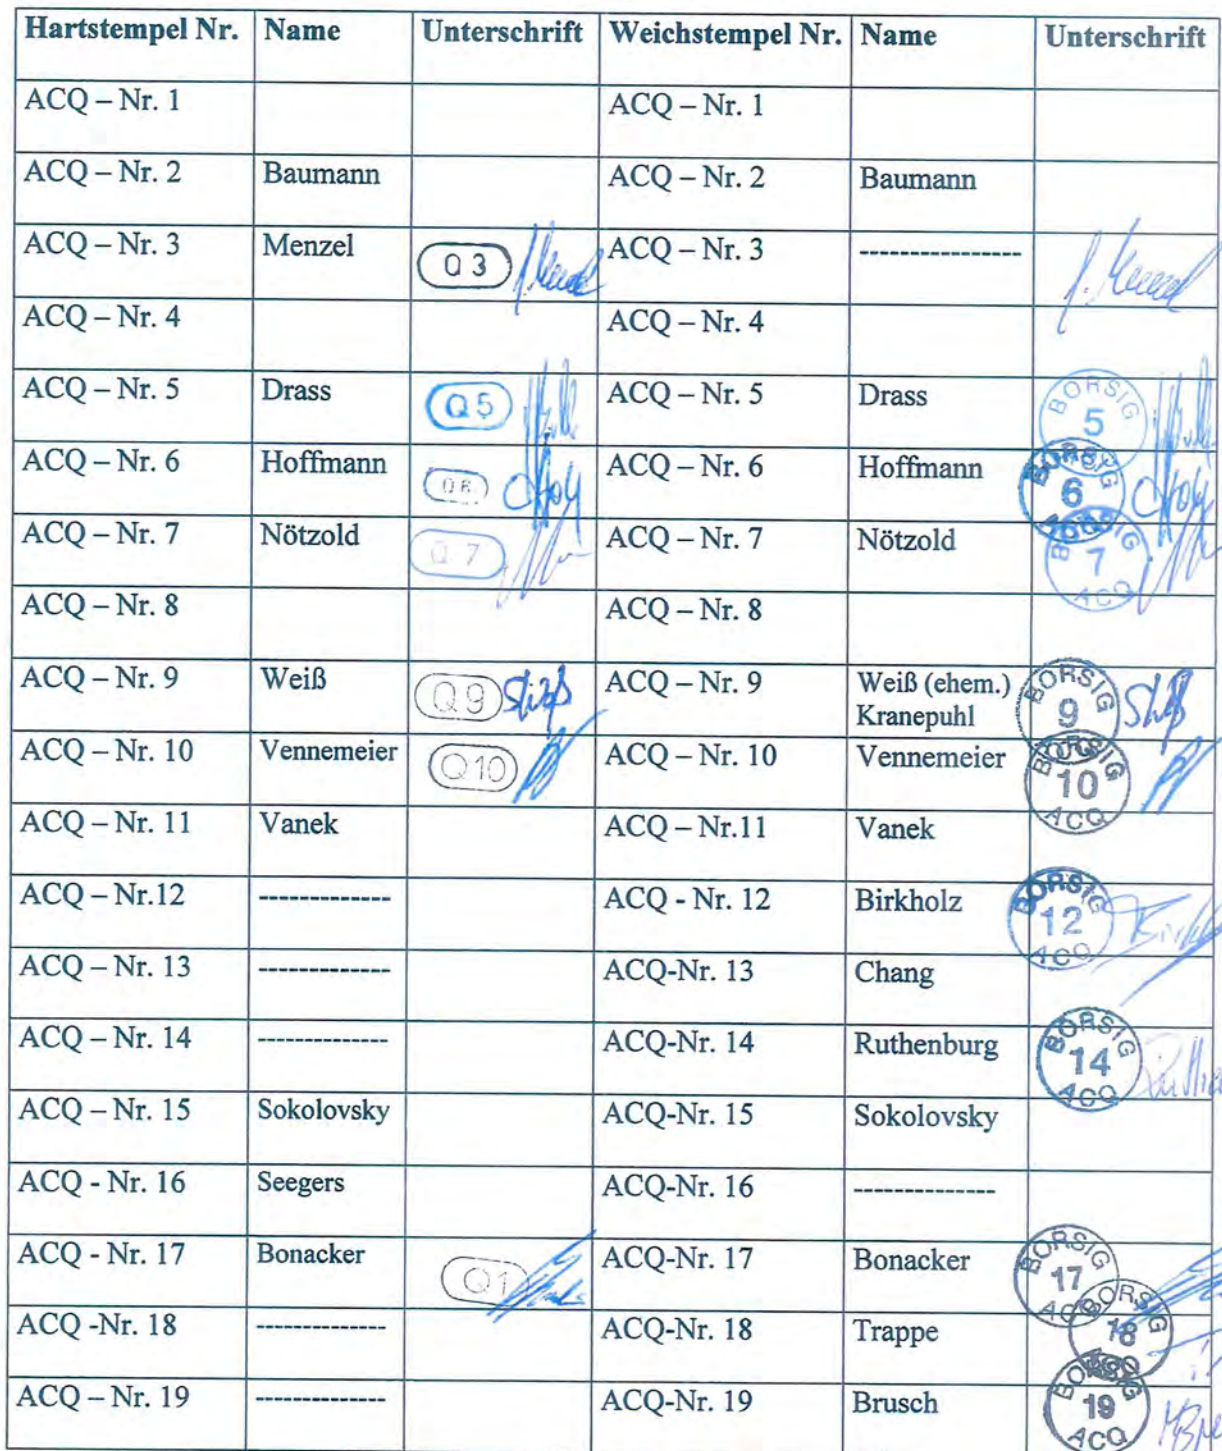 Hartstempel Nr. Name Unterschrift Weichstempel Nr. Name Unterschrift
ACQ – Nr. 1 ACQ – Nr. 1
ACQ – Nr. 2 Baumann ACQ – Nr. 2 Baumann
ACQ – Nr. 3 Menzel Q 3 ACQ – Nr. 3 ----------------
ACQ – Nr. 4 ACQ – Nr. 4
ACQ – Nr. 5 Drass Q 5 ACQ – Nr. 5 Drass BORSIG 5
ACQ – Nr. 6 Hoffmann Q 6 ACQ – Nr. 6 Hoffmann BORSIG 6 ACQ
ACQ – Nr. 7 Nötzold Q 7 ACQ – Nr. 7 Nötzold BORSIG 7 ACQ
ACQ – Nr. 8 ACQ – Nr. 8
ACQ – Nr. 9 Weiß Q 9 ACQ – Nr. 9 Weiß (ehem.) BORSIG 9
Kranepuhl
ACQ – Nr. 10 Vennemeier Q 10 ACQ – Nr. 10 Vennemeier BORSIG 10 ACQ
ACQ – Nr. 11 Vanek ACQ – Nr.11 Vanek
ACQ – Nr.12 ------------- ACQ - Nr. 12 Birkholz BORSIG 12 ACQ
ACQ – Nr. 13 ------------- ACQ-Nr. 13 Chang
ACQ – Nr. 14 ------------- ACQ-Nr. 14 Ruthenburg BORSIG 14 ACQ
ACQ – Nr. 15 Sokolovsky ACQ-Nr. 15 Sokolovsky
ACQ - Nr. 16 Seegers ACQ-Nr. 16 --------------
ACQ - Nr. 17 Bonacker Q 1 ACQ-Nr. 17 Bonacker BORSIG 17 ACQ
ACQ -Nr. 18 ------------- ACQ-Nr. 18 Trappe BORSIG 18 ACQ
ACQ – Nr. 19 ------------- ACQ-Nr. 19 Brusch BORSIG 19 ACQ